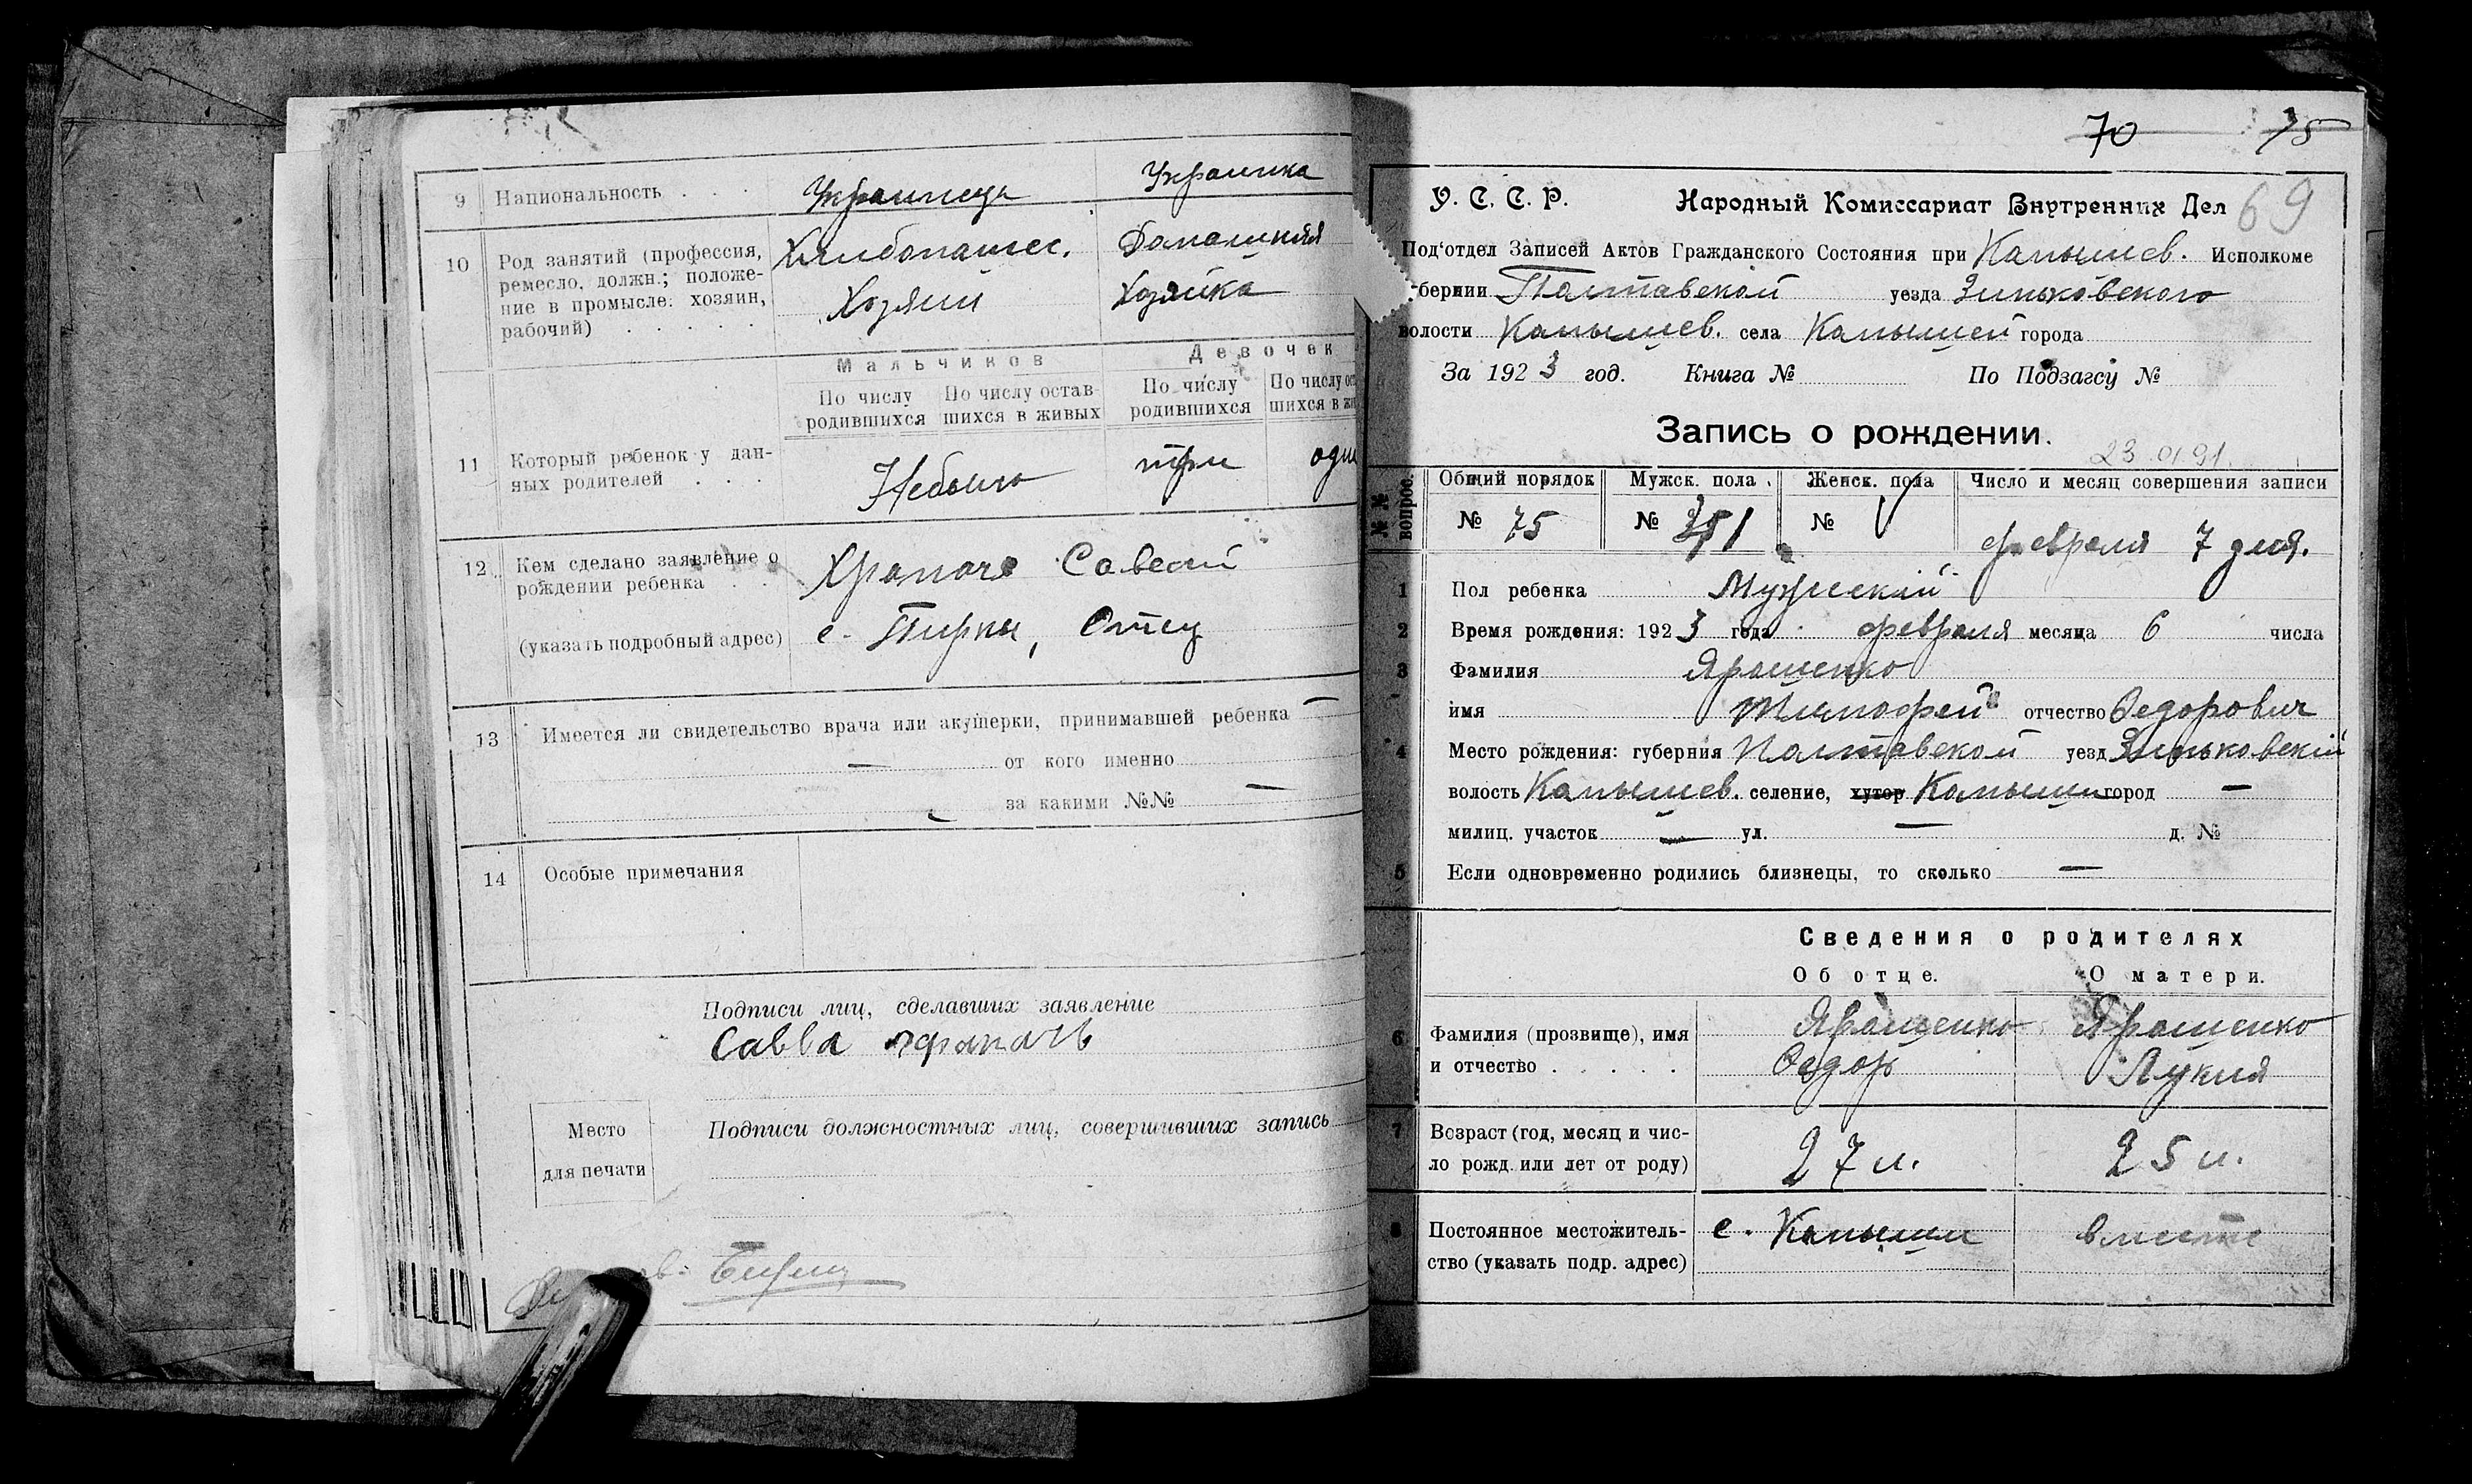 9 Национальность . . . Украинец Украинка
10 Род занятий (профессия, ремесло, должн.; положение в промысле: хозяин, рабочий) . . . . . Хлебопашес. Домашняя
Хозяин Хозяйка
Мальчиков Девочек
По числу родившихся По числу оставшихся в живых По числу родившихся По числу
11 Который ребенок у данных родителей . . . Небыло три
12 Кем сделано заявление о рождении ребенка . . Храпачь Савелий
(указать подробный адрес) с. Пирки, Отец
13 Имеется ли свидетельство врача или акушерки, принимавшей ребенка —
— от кого именно
за какими №№ —
14 Особые примечания
Подписи лиц, сделавших заявление
Савва Храпачь
Место для печати
Подписи должностных лиц, совершивших запись
70 75
У. С. С. Р. Народный Комиссариат Внутренних Дел 69
Под'отдел Записей Актов Гражданского Состояния при Капышев. Исполкоме
бернии Полтавской уезда Зиньковского
волости Капышев. села Капышей города
За 1923 год. Книга № По Подзагсу №
Запись о рождении.
23.01.91.
№№ вопрос. Общий порядок Мужск. пола Женск. пола Число и месяц совершения записи
№ 75 № № V февраля 7 дня.
1 Пол ребенка Мужский
2 Время рождения: 1923 года февраля месяца 6 числа
3 Фамилия Ярошенко
имя Тимофей отчество Федорович
4 Место рождения: губерния Полтавской уезд Зиньковский
волость Капышев. селение, хутор Капыши город —
милиц. участок — ул. — д. №
5 Если одновременно родились близнецы, то сколько —
Сведения о родителях
Об отце. О матери.
6 Фамилия (прозвище), имя и отчество . . . . . Ярошенко Федор Ярошенко Лукия
7 Возраст (год, месяц и число рожд. или лет от роду) 27 л. 25 л.
8 Постоянное местожительство (указать подр. адрес) с. Капыши вместе